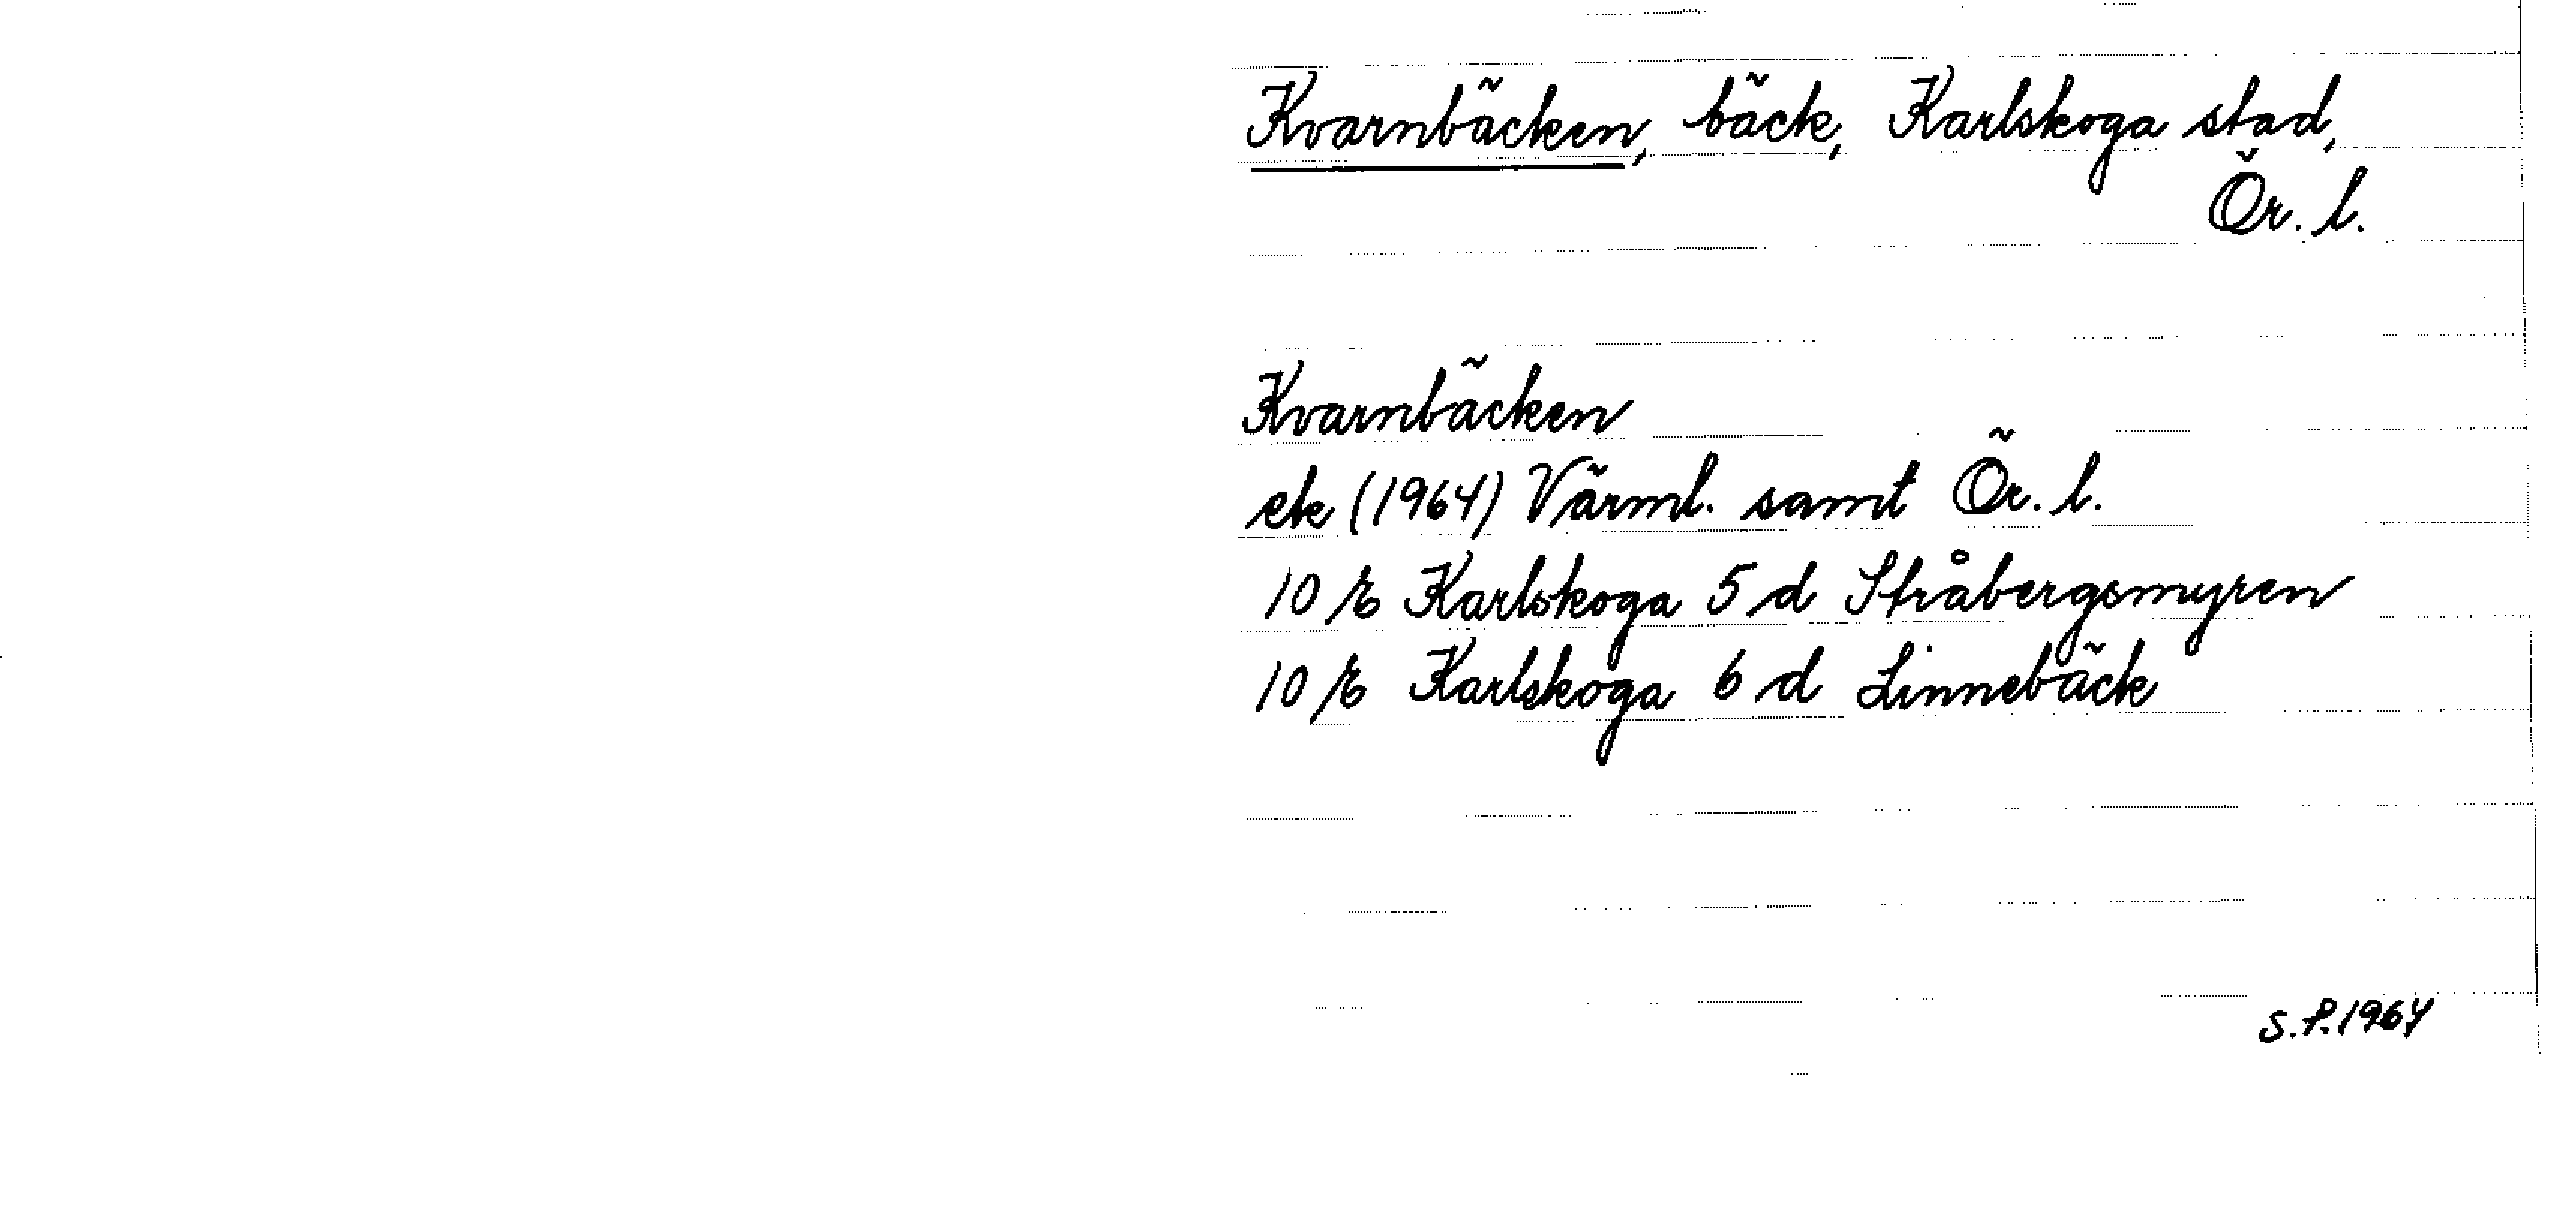 Kvarnbäcken, bäck, Karlskoga stad,
Ör. l.
Kvarnbäcken
ek (1964) Värml. samt Ör. l.
10 E Karlskoga 5 d Stråbergsmyren
10 E Karlskoga 6 d Linnebäck
S.P. 1964